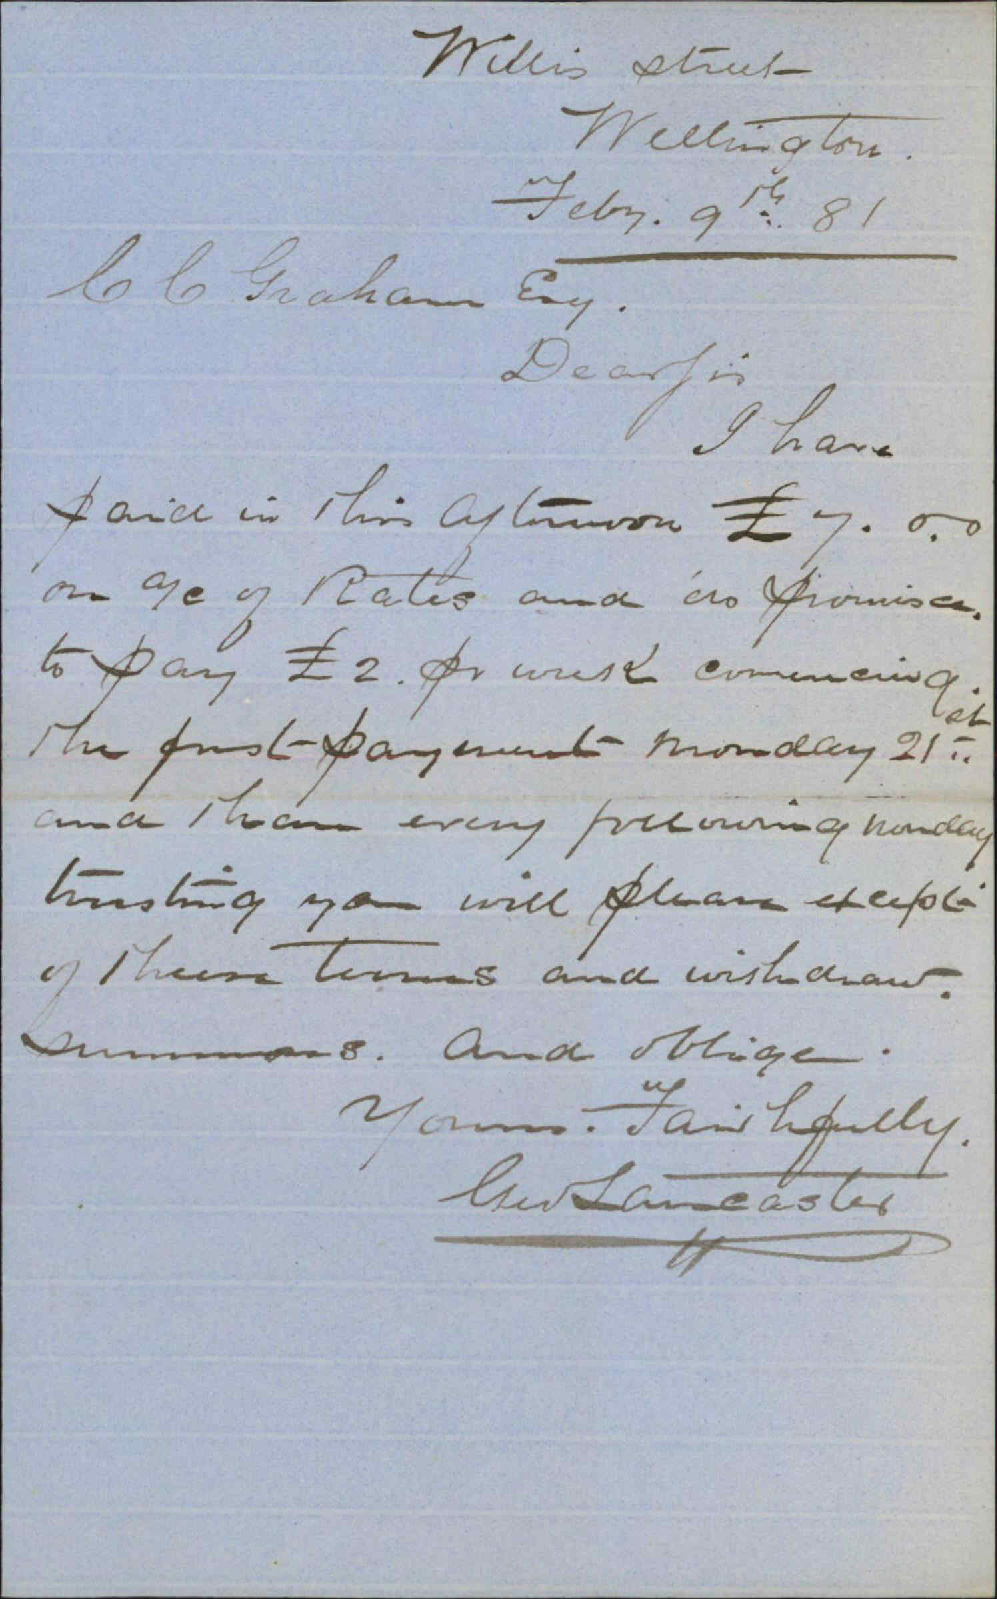 Willis street
Wellington.
Feby. 9th. 81
C C Graham Esq.
Dear Sir
I have
paid in this afternoon £7.0.0
on a/c of Rates and do promise.
to pay £2. pr week comencing.
the first payment monday 21st
and than every following monday
trusting you will please except
of theese terms and withdraw.
summons. And oblige.
Yours. Faithfully.
Geo Lancaster